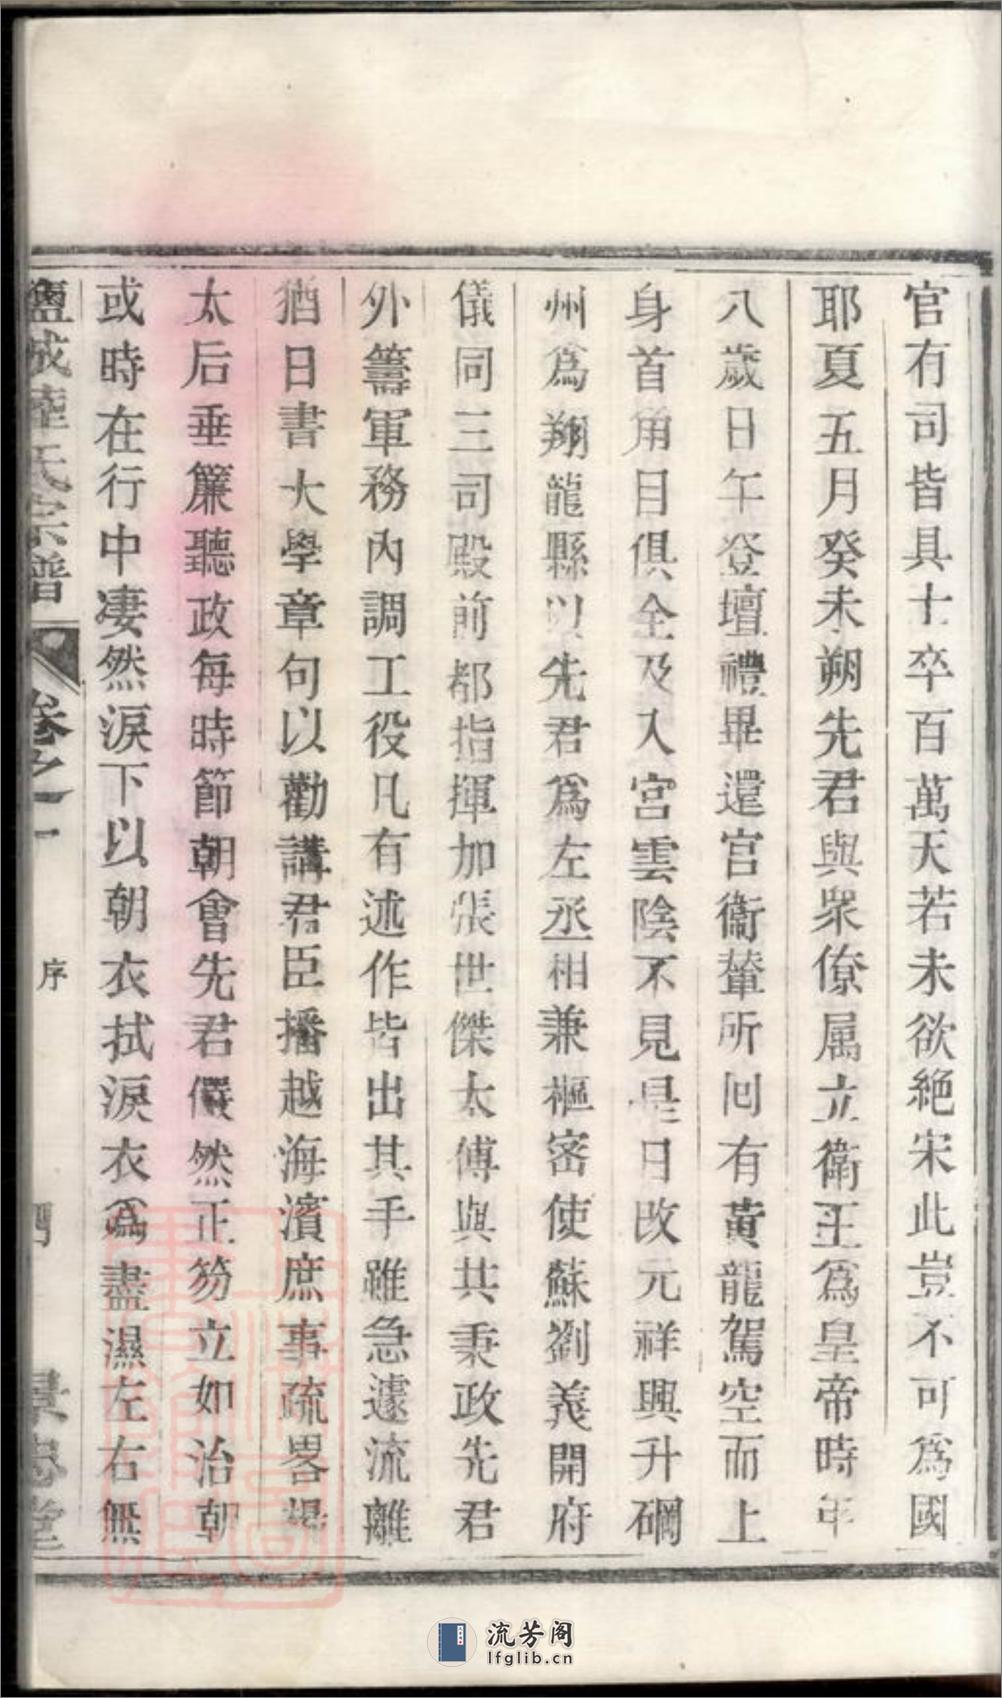 官有司皆具士卒百萬天若未欲絕宋此豈不可為國
耶夏五月癸未朔先君與眾僚属立衛王為皇帝時年
八歲日午登壇禮畢還宮衞輦所回有黃龍駕空而上
身首角目俱全及入宮雲陰不見是日改元祥興升碙
州為翔龍縣以先君為左丞相兼樞密使蘇劉義開府
儀同三司殿前都指揮加張世傑太傅與共秉政先君
外籌軍務內調工役凡有述作皆出其手雖急遽流離
猶日書大學章句以勸講君臣播越海濱庶事疏畧楊
太后垂簾聽政每時節朝會先君儼然正笏立如治朝
或時在行中凄然淚下以朝衣拭淚衣為盡濕左右無
鹽城陸氏宗譜 卷之一 序 四 景忠堂
流芳阁
lfglib.cn